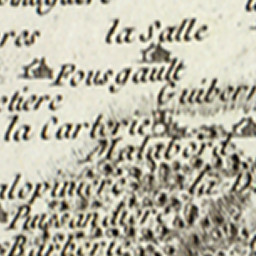 res
la Salle
Fousgault
etiere
Guibern
la Carterie
Malabord
alopiniere
la D
Puissandiere